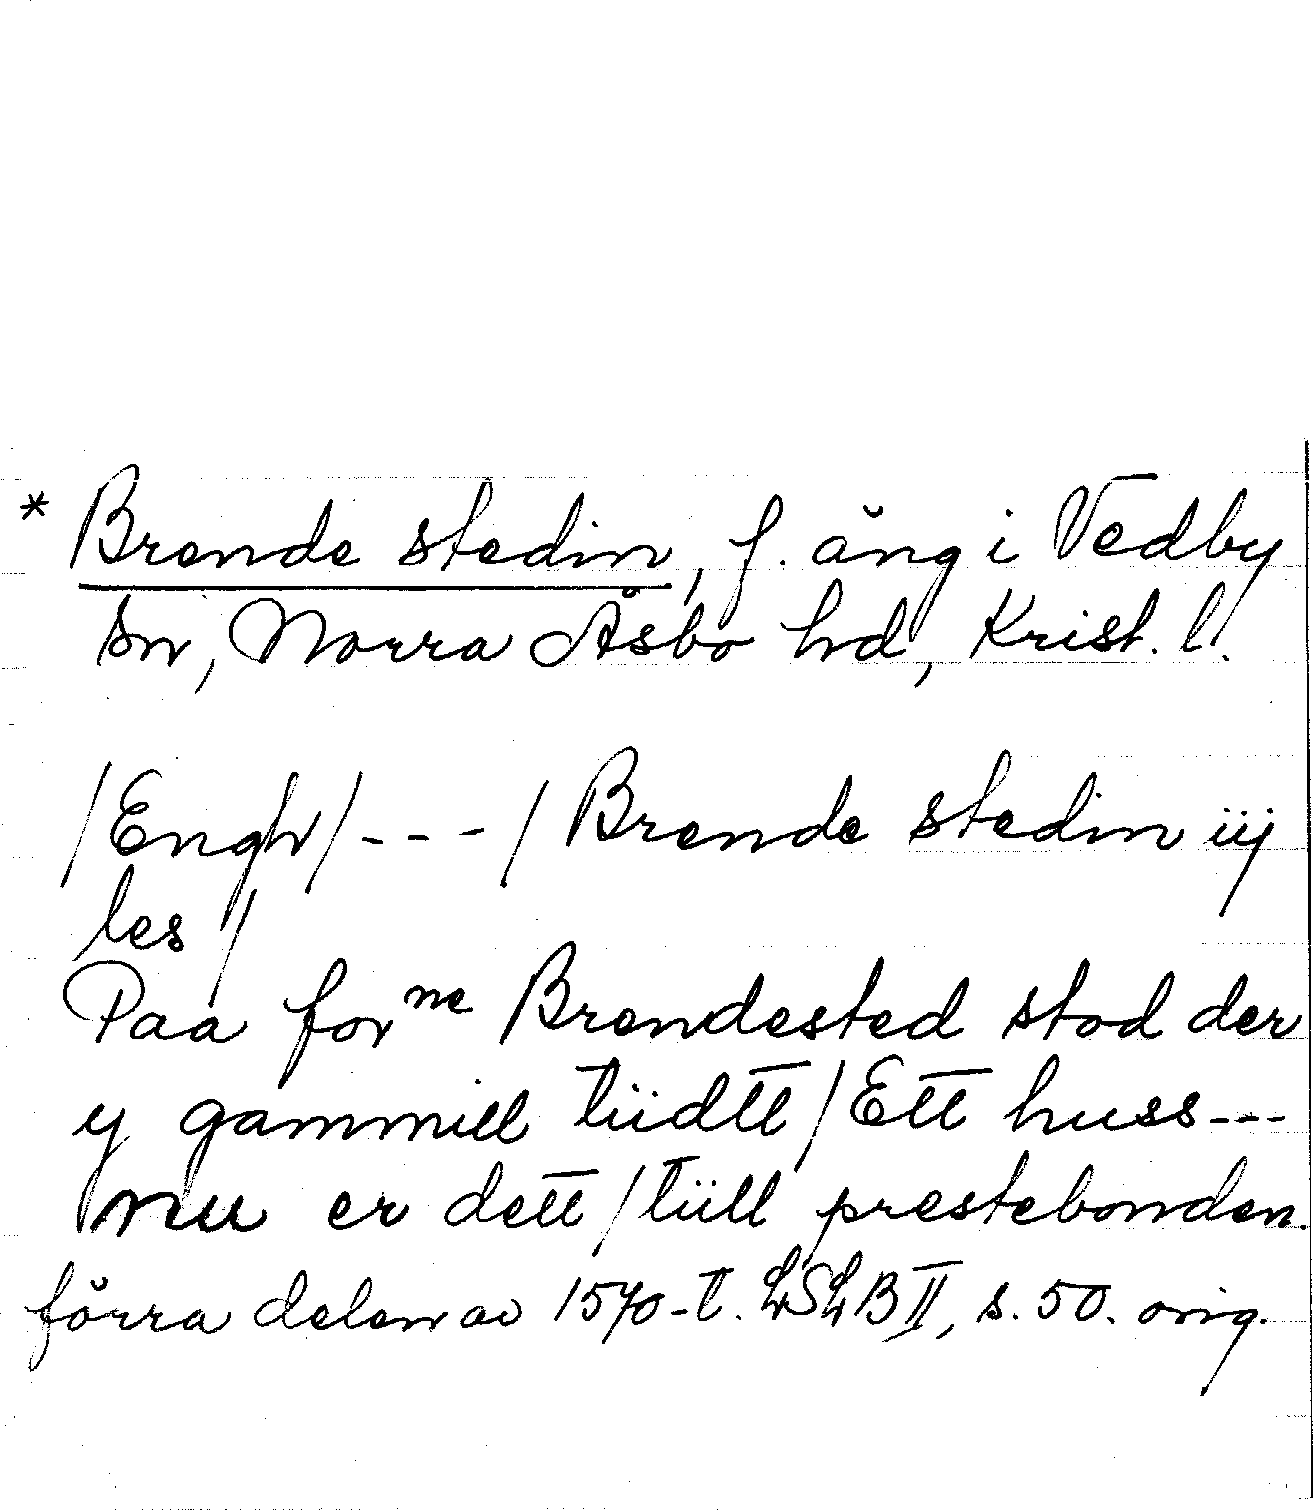 * Brende stedin, f. äng i Vedby
sn, Norra Åsbo hd, Krist. l.
/Engh/--- / Brende stedin iij
les /
Paa forne Brendested stod der
y gammell tiidtt / Ett huss---
nu er dett / tiill prestebonden.
förra delen av 1570-t. LSLB II, s. 50. orig.